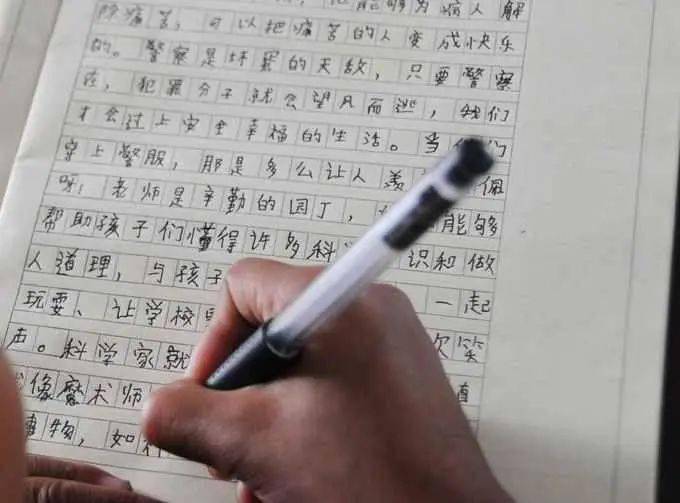 能够为病人解
除痛苦，可以把痛苦的人变成快乐
的。警察是坏蛋的天敌，只要警察
在，犯罪分子就会望风而逃，我们
才会过上安全幸福的生活。当
穿上警服，那是多么让人羡 佩
呀；老师是辛勤的园丁， 能够
帮助孩子们懂得许多科 识和做
人道理，与孩子 一起
玩耍、让学校 欢笑
声。科学家就
像魔术师
事物，如